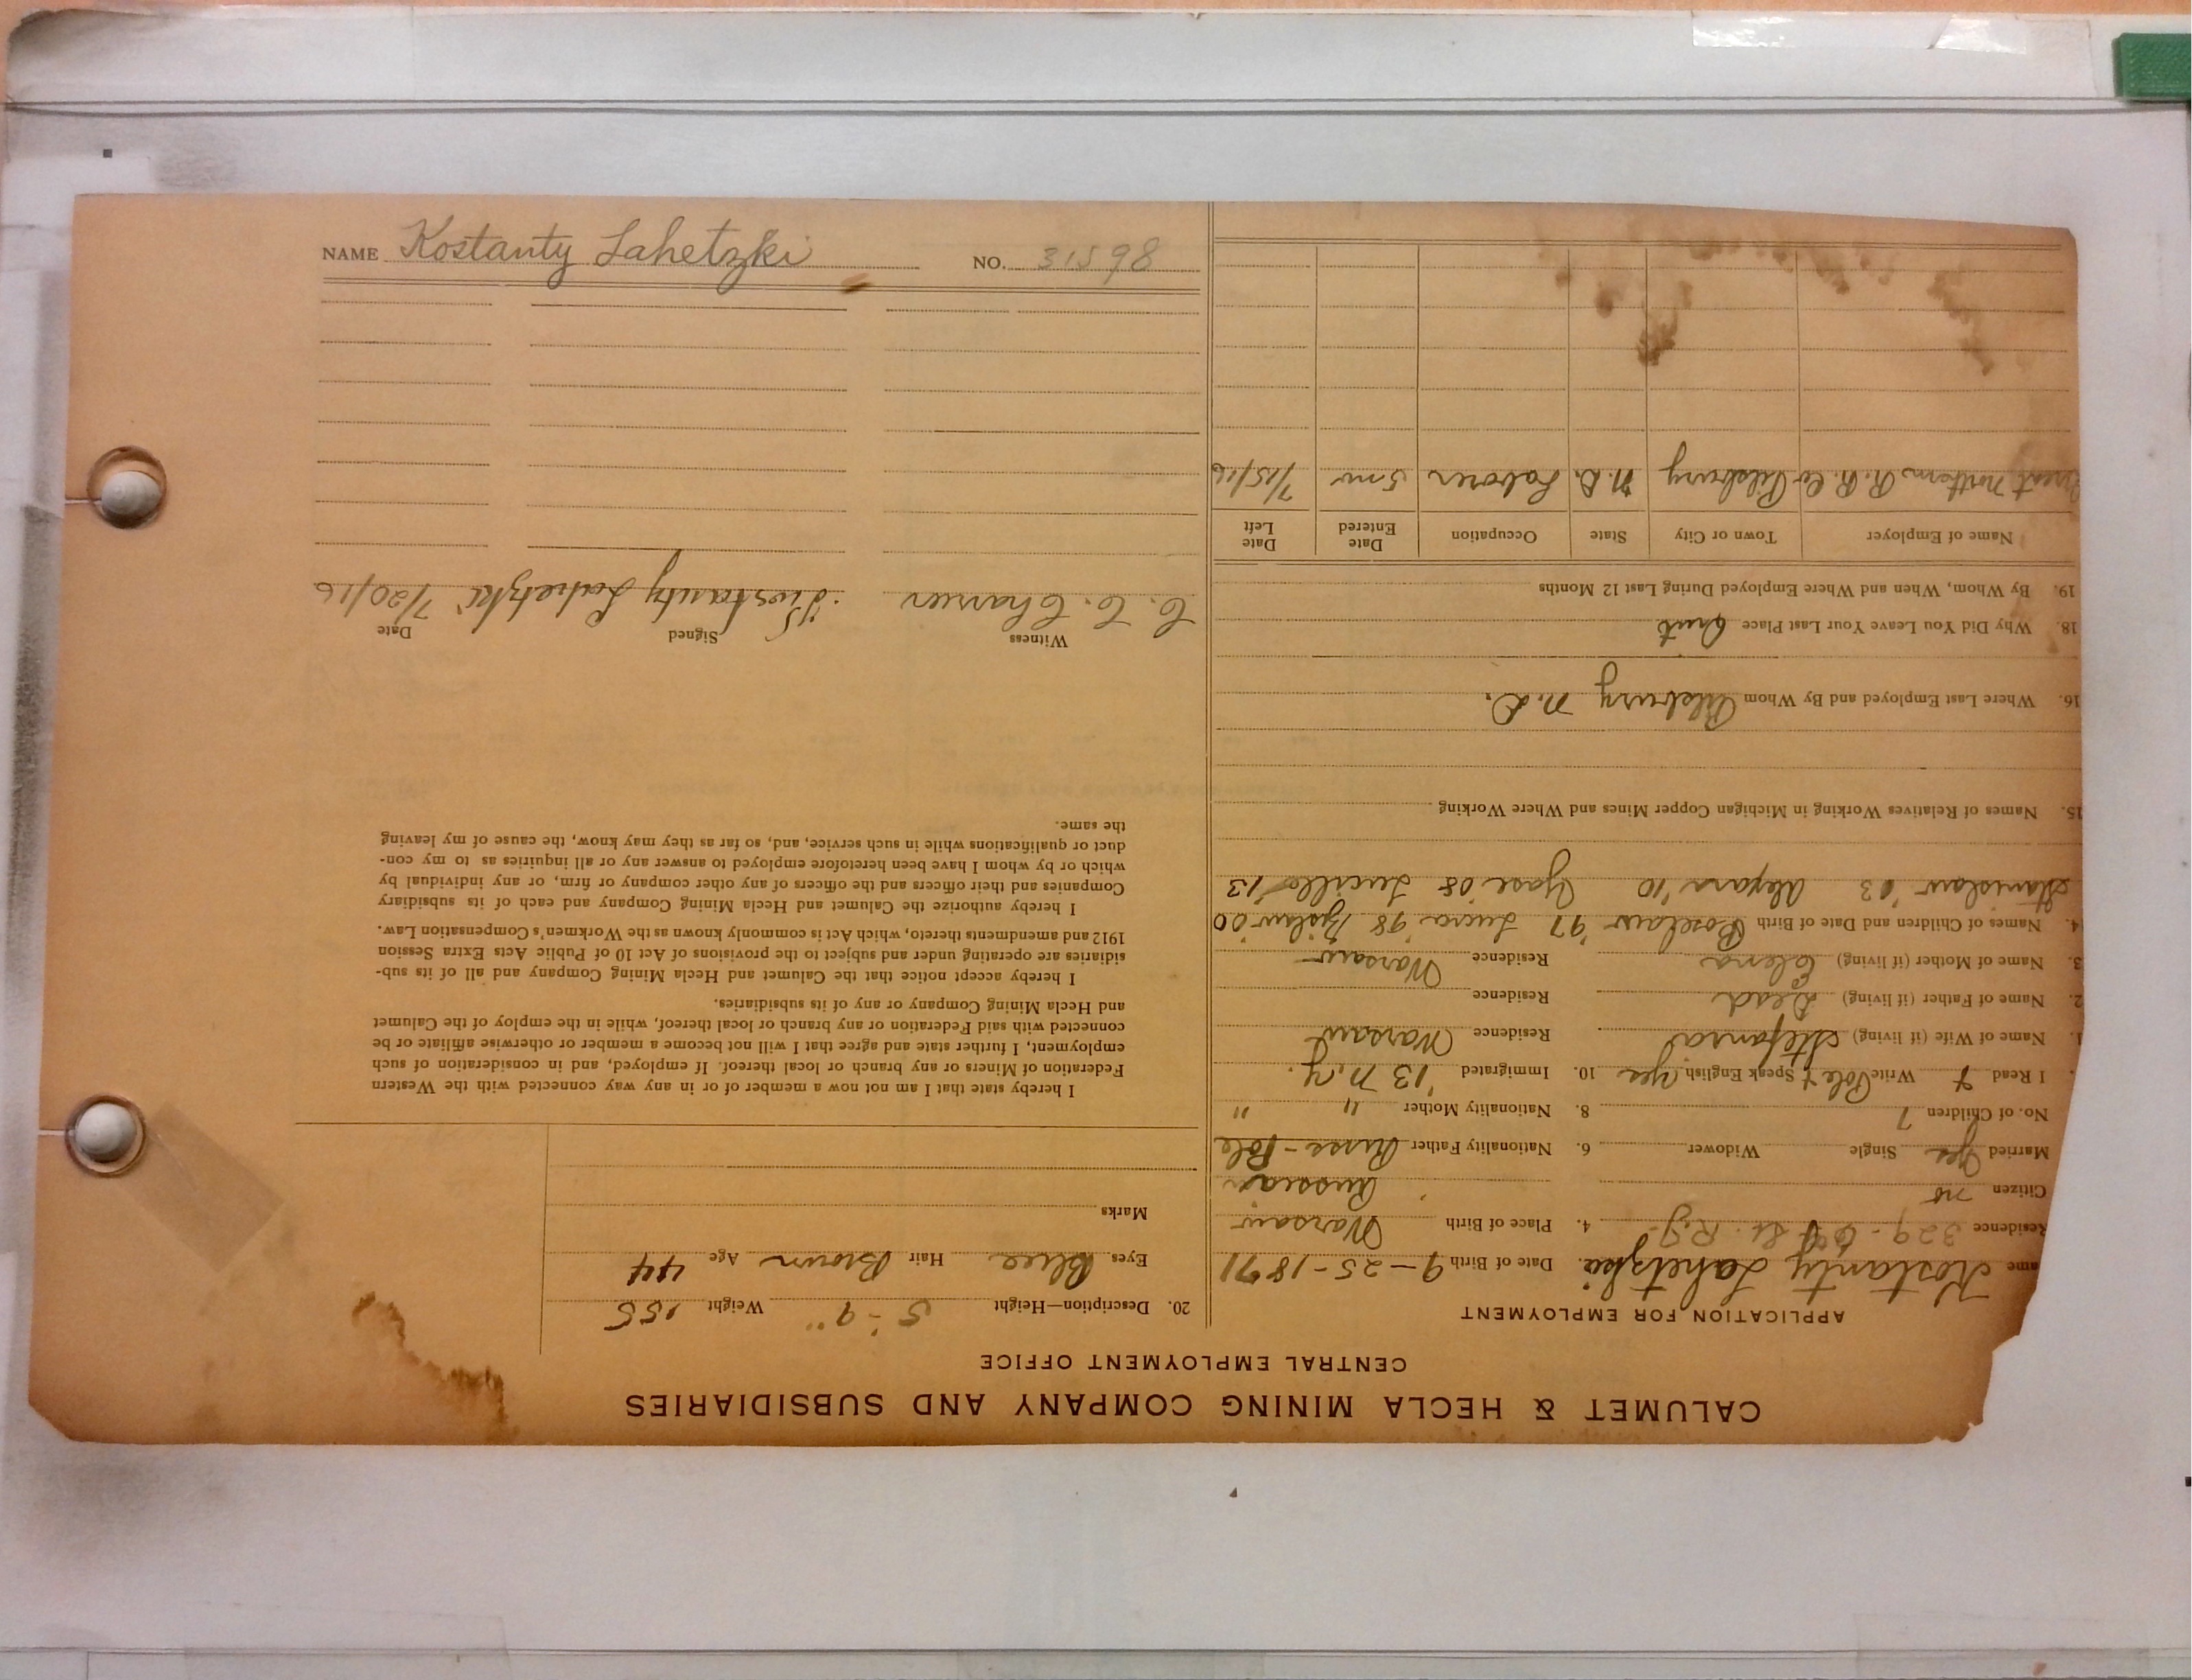 CALUMET & HECLA MINING COMPANY AND SUBSIDIARIES
CENTRAL EMPLOYMENT OFFICE
APPLICATION FOR EMPLOYMENT
ame Kostanty Lahetzki. Date of Birth 9-25-1871
Residence 329- St. 4. Place of Birth Warsaw
Citizen no Russia
Married Yes Single Widower 6. Nationality Father Russ-Pole
No. of Children 7 8. Nationality Mother " "
I Read + Write Pole + Speak English Yes 10. Immigrated '13 N.Y.
1. Name of Wife (if living) Stefania Residence Warsaw
2. Name of Father (if living) Dead Residence
3. Name of Mother (if living) Elena Residence Warsaw
4. Names of Children and Date of Birth Boselaw '97 '98 '00
Stanislaw '03 '10 '08 Lucille '13
15. Names of Relatives Working in Michigan Copper Mines and Where Working
16. Where Last Employed and By Whom Pilsbury N.D.
18. Why Did You Leave Your Last Place Quit
19. By Whom, When and Where Employed During Last 12 Months
Name of Employer Town or City State Occupation Date Entered Date Left
Great Northern R.R. Co Pilsbury N.D. Laborer 5 mo 7/15/16
20. Description—Height 5'-9" Weight 155
Eyes Blue Hair Brown Age 44
Marks
I hereby state that I am not now a member of or in any way connected with the Western
Federation of Miners or any branch or local thereof. If employed, and in consideration of such
employment, I further state and agree that I will not become a member or otherwise affiliate or be
connected with said Federation or any branch or local thereof, while in the employ of the Calumet
and Hecla Mining Company or any of its subsidiaries.
I hereby accept notice that the Calumet and Hecla Mining Company and all of its sub-
sidiaries are operating under and subject to the provisions of Act 10 of Public Acts Extra Session
1912 and amendments thereto, which Act is commonly known as the Workmen's Compensation Law.
I hereby authorize the Calumet and Hecla Mining Company and each of its subsidiary
Companies and their officers and the officers of any other company or firm, or any individual by
which or by whom I have been heretofore employed to answer any or all inquiries as to my con-
duct or qualifications while in such service, and, so far as they may know, the cause of my leaving
the same.
Witness Signed Date
Kostanty Lahetzki 7/20/16
NAME Kostanty Lahetzki NO. 31598